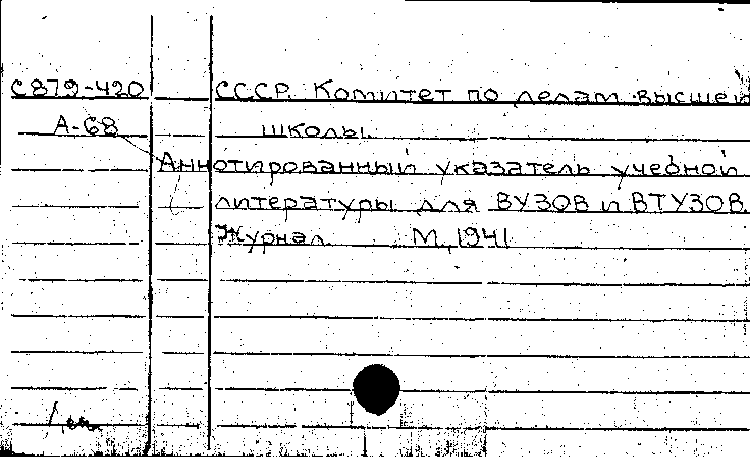 С879-420 СССР. Комитет по делам высшей
А-68 школы.
Аннотированный указатель учебной
литературы для ВУЗОВ и ВТУЗОВ.
Журнал. М, 1941